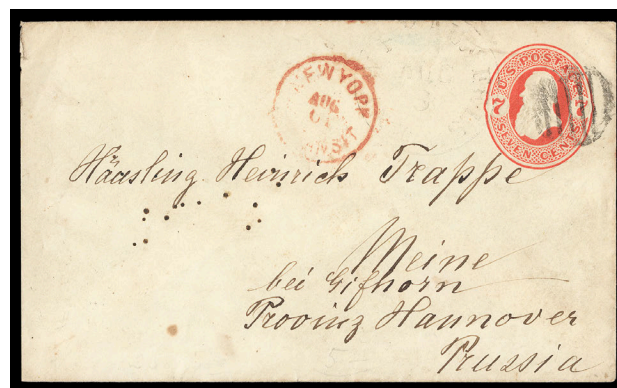 NEW YORK
AUG
TRANSIT
U.S. POSTAGE
7 7
SEVEN CENTS
Häasling Heinrich Trappe
Meine
bei Gifhorn
Provinz Hannover
Prussia